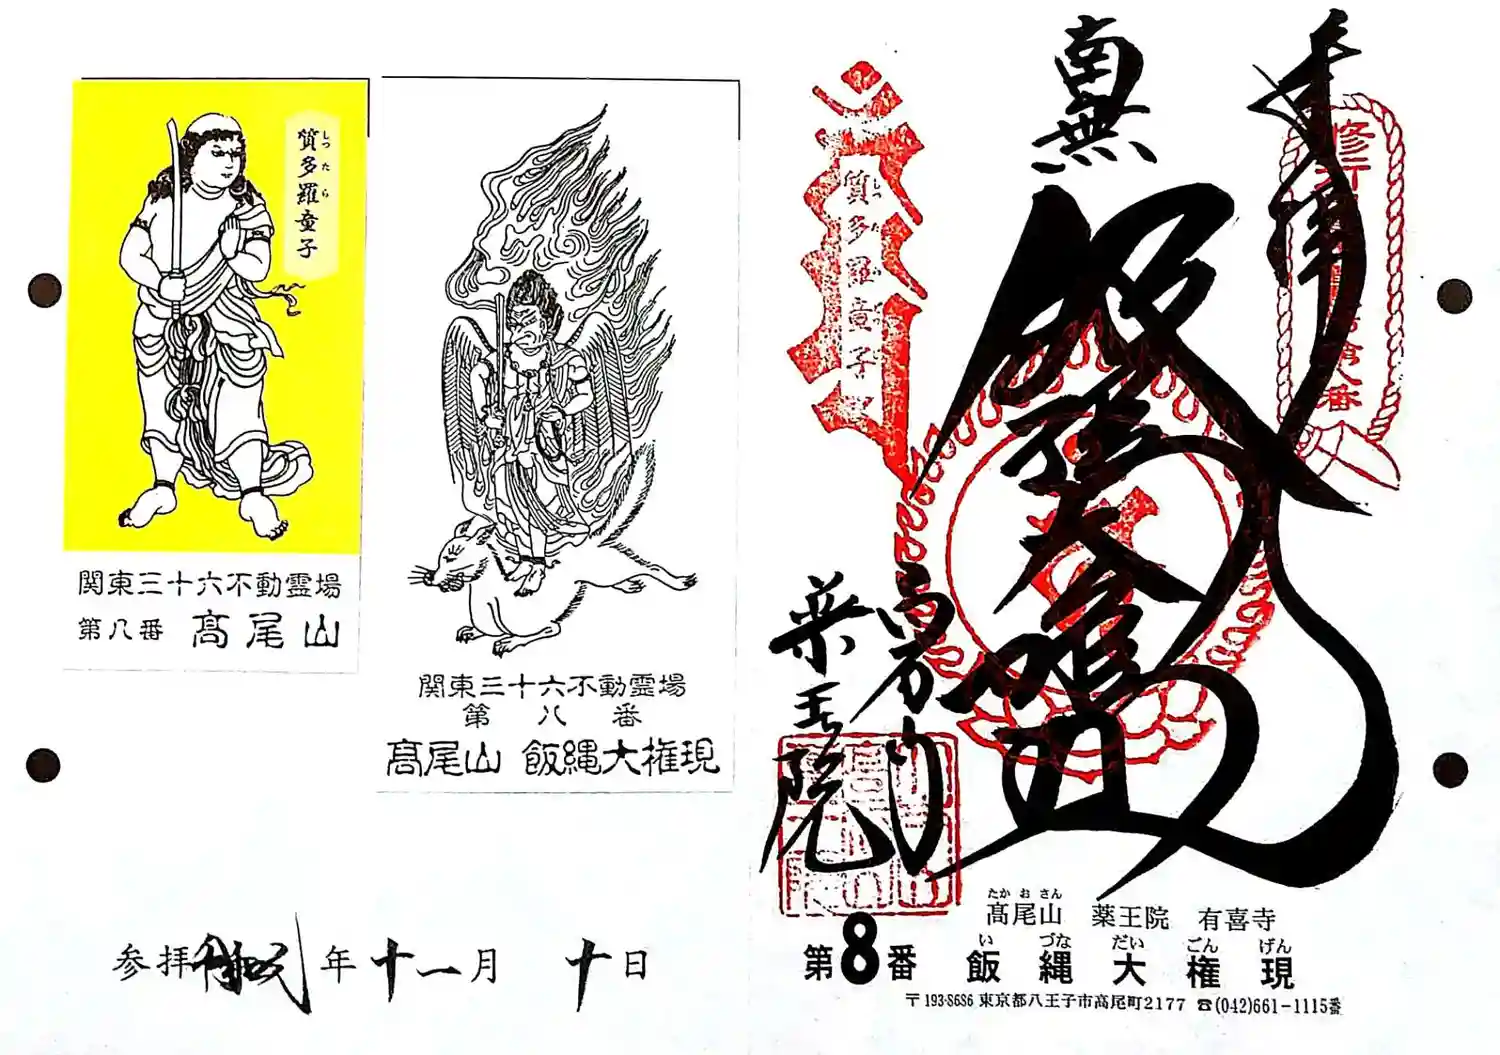 質多羅童子
しつたら
関東三十六不動霊場
第八番 髙尾山
関東三十六不動霊場
第八番
髙尾山 飯縄大権現
参拝 年十一月十日
奉拝
南無
飯縄大権現
髙尾山
薬王院
質多羅童子
しつたら
たかおさん
髙尾山 薬王院 有喜寺
第8番
いづなだいごんげん
飯縄大権現
〒193-8686 東京都八王子市高尾町2177 ☎(042)661-1115番